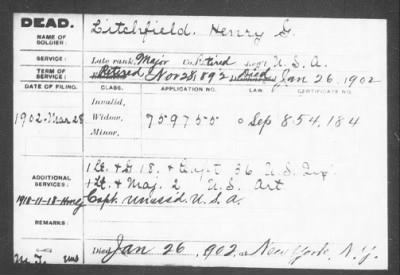 DEAD.
NAME OF SOLDIER: Litchfield, Henry G.
SERVICE: Late rank, Major Co. Retired Reg't U. S. A.
TERM OF SERVICE: Retired Nov 28, 892 Died Jan 26, 1902
DATE OF FILING. CLASS. APPLICATION NO. LAW. CERTIFICATE NO.
Invalid,
1902-Mar 28 Widow, 759755 o Sep 854,184
Minor,
1 Lt. & 18. & Capt 36 U.S. Inf.
ADDITIONAL SERVICES: 1 Lt. & Maj. 2, U.S. Art
Capt. unassd. U.S.A.
REMARKS:
Died Jan 26, 1902, at New York, N.Y.